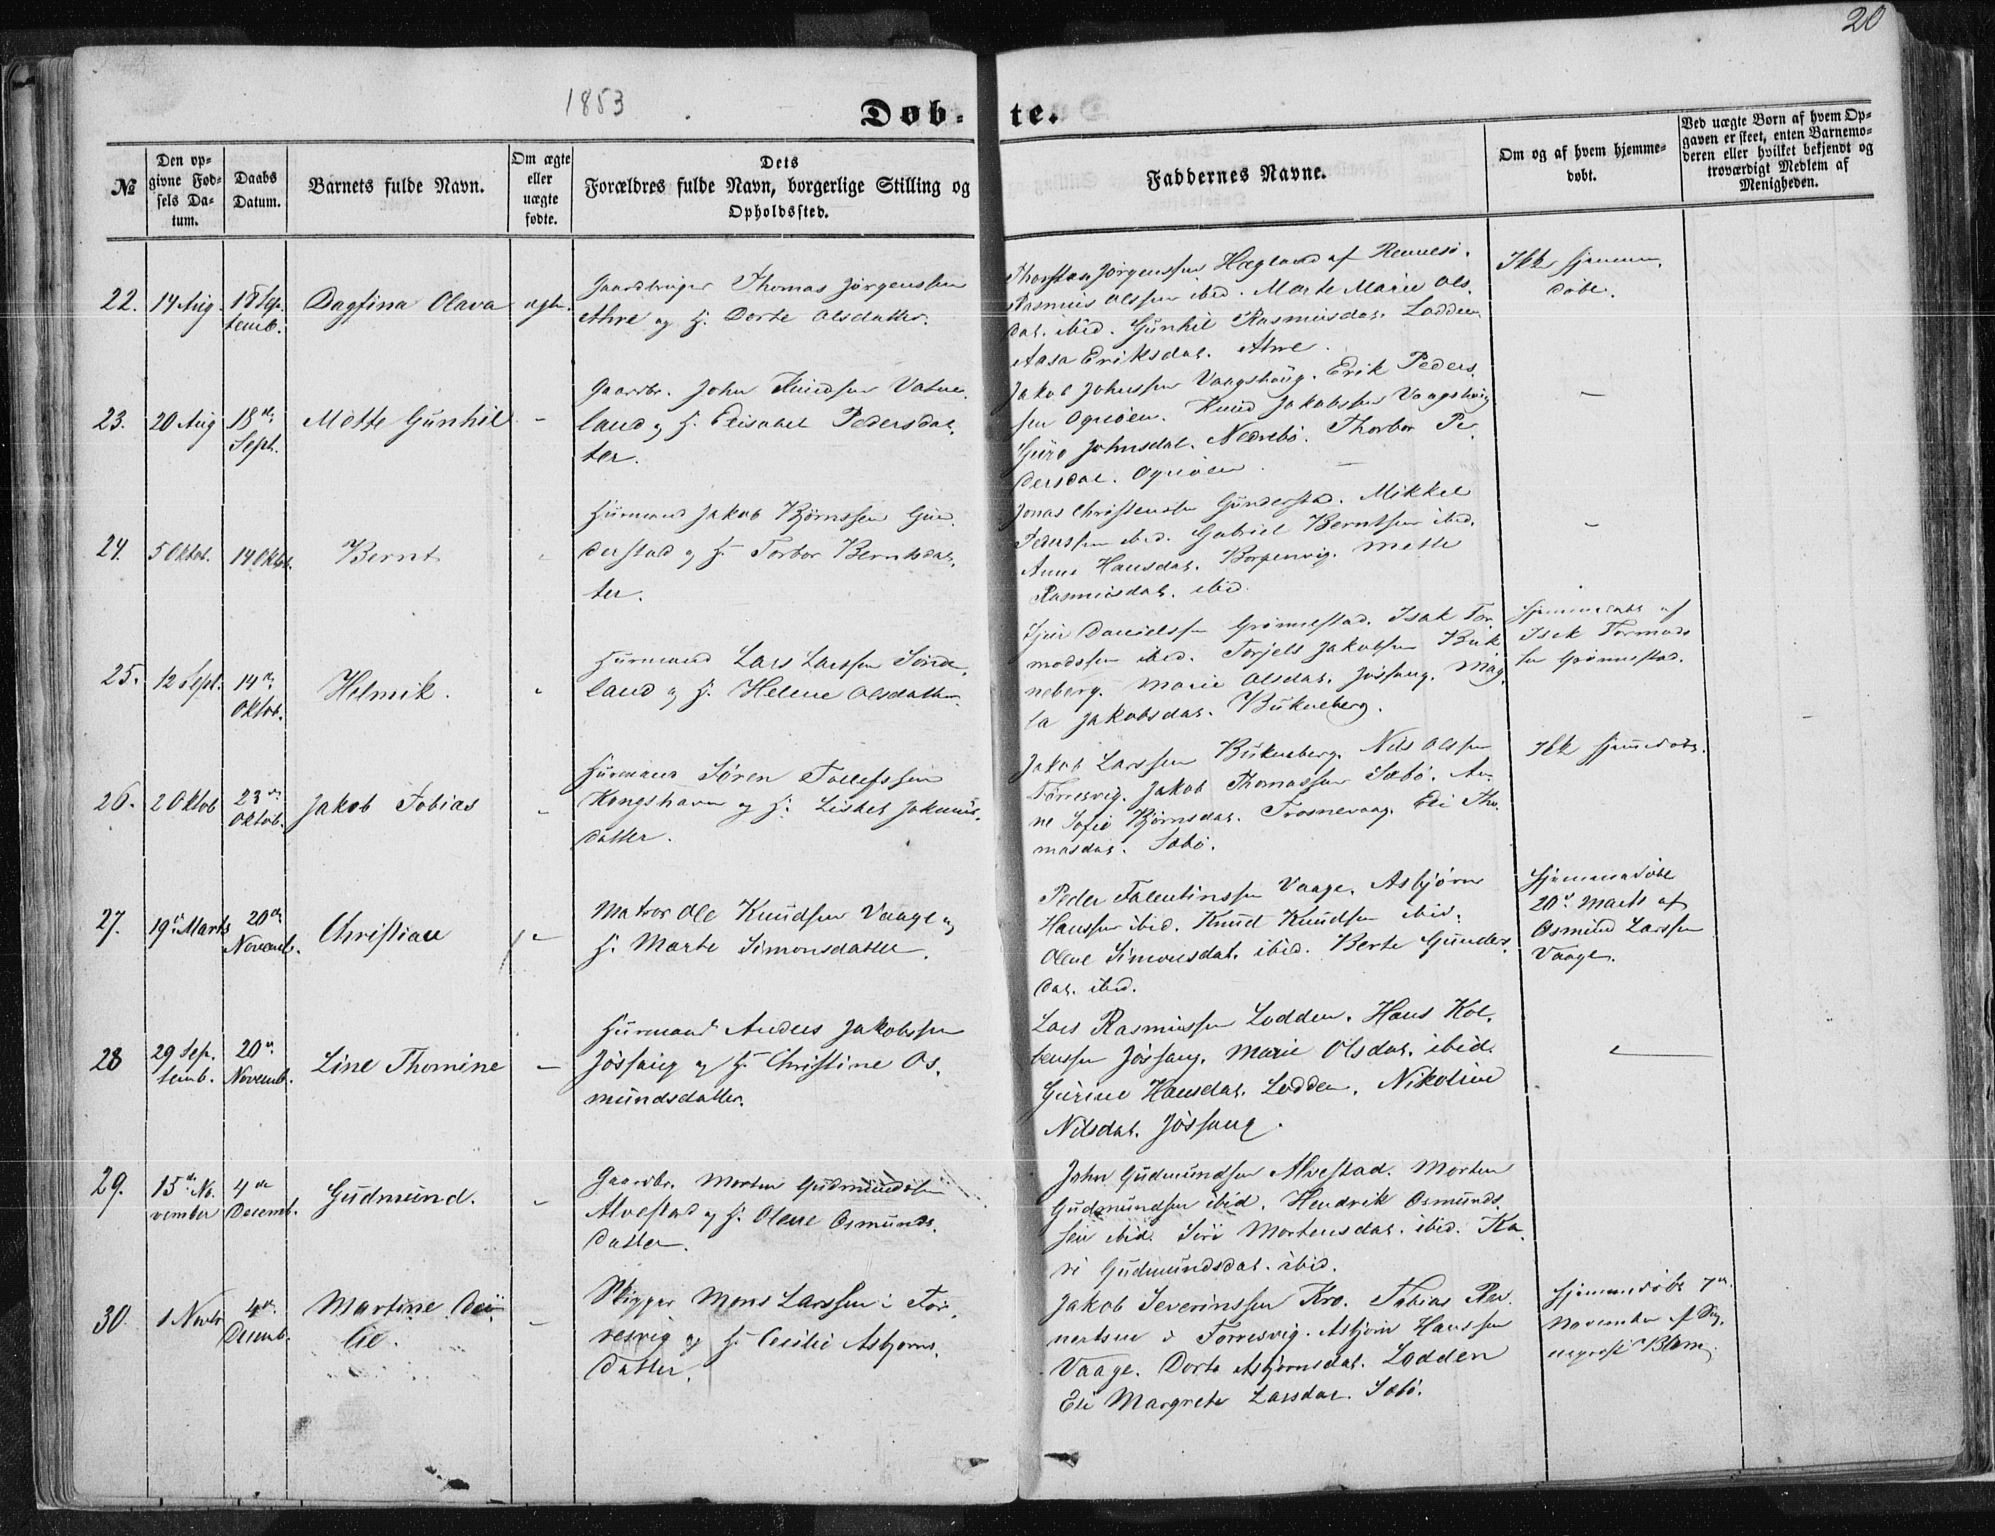 20
1853
Døb-te.
№
Den op-
givne Fød-
sels Da-
tum.
Daabs
Datum.
Barnets fulde Navn.
Om ægte
eller
uægte
fødte.
Dets
Forældres fulde Navn, borgerlige Stilling og
Opholdssted.
Faddernes Navne.
Om og af hvem hjemme-
døbt.
Ved uægte Børn af hvem Op-
gaven er skeet, enten Barnemo-
deren eller hvilket bekjendt og
troværdigt Medlem af
Menigheden.
22.
14 Aug.
18 Sep-
temb.
Dagfina Olava
ægte.
Gaardbruger Thomas Jørgenssen
Ahre og H. Dorte Olsdatter.
Jørgenssen Hagland af
Rasmus Olssen ibid. Marte Marie Ols.
dat. ibid. Gunhil Rasmusdat. Lodden
Aasa Eriksdat. Ahre.
Ikke hjemme
døbt.
23.
20 Aug
18de
Sept.
Mette Gunhil
-
Gaardbr. John Knudsen Vatne.
land og H. Elisabet Pedersdat.
ter.
Jakob Johnssen Vaagshaug. Erik Peders.
sen Ognøen. Knud Jakobssen Vaagshaug
Guro Johnsdat. Nedrebø. Thorbor Pe.
dersdat. Ognøen.
-
24.
5 Oktob.
14 Oktob.
Bernt
-
Huusmand Jakob Bjørnssen Gun.
derstad og H. Torbor Berntsdat.
ter.
Jonas Christenssen Gunderstad. Mikkel
Pederssen ibid. Gabriel Berntsen ibid.
Anne Hansdat. Mette
Rasmusdat. ibid.
-
25.
12 Sept.
14de
Oktob.
Helmik.
-
Huusmand Lars Larssen Sønde.
land og H. Helene Olsdatter.
Danielssen Grønnestad. Isak Tor.
modssen ibid. Torjels Jakobssen Buk
neberg. Marie Olsdat. Jøssang. Mag.
la Jakobsdat. Bukneberg.
Hjemmedøbt af
Isak Tormods
sen Grønnestad.
26.
2 Oktob
23de
Oktob.
Jakob Tobias
-
Huusmand Søren Tollefssen
Kongshavn og H. Lisbet Jakobs.
datter.
Jakob Larssen Bukneberg. Nils Olssen
Torresvig. Jakob Thomassen Sæbø. An-
ne Sofie Bjørnsdat. Trosnevaag. Eli Tho.
masdat. Sæbø.
Ikke hjemmedøbt.
27.
19de Marts
20de
Novemb.
Christian
-
Matros Ole Knudsen Vaage og
H. Marte Simonsdatter.
Peder Falentinssen Vaage. Asbjørn
Hanssen ibid. Knud Knudsen ibid.
Olene Simonsdat. ibid. Berte Gunders.
dat. ibid.
Hjemmedøbt
20de Marts af
Osmund Larssen
Vaage.
28
29 Sep.
temb.
20de
Novemb.
Line Thomine
-
Huusmand Anders Jakobssen
Jøssang og H. Christine Os.
mundsdatter.
Lars Rasmussen Lodden. Hans Kol.
benssen Jøssang. Marie Olsdat. ibid.
Gurine Hansdat. Lodden. Nikoline
Nilsdat. Jøssang.
-
29.
15de No.
vember
4de
Decemb.
Gudmund.
-
Gaardbr. Morten Gudmundsen
Alvestad og H. Olene Osmunds.
datter.
John Gudmundsen Alvestad. Morten
Gudmundsen ibid. Hendrik Osmunds.
sen ibid. Siri Mortensdat. ibid. Ka.
ri Gudmundsdat. ibid.
30.
1 Novbr
4de
Decemb.
Martine Ceci
lie.
-
Skipper Mons Larssen i Tor.
resvig og H. Cecilie Asbjørns.
datter.
Jakob Severinssen Kro. Tobias
i Torresvig. Asbjørn Hanssen
Vaage. Dorte Asbjørnsdat. Lodden
Eli Margrete Larsdat. Sæbø.
Hjemmedøbt 7de
November af Sog.
nepræst